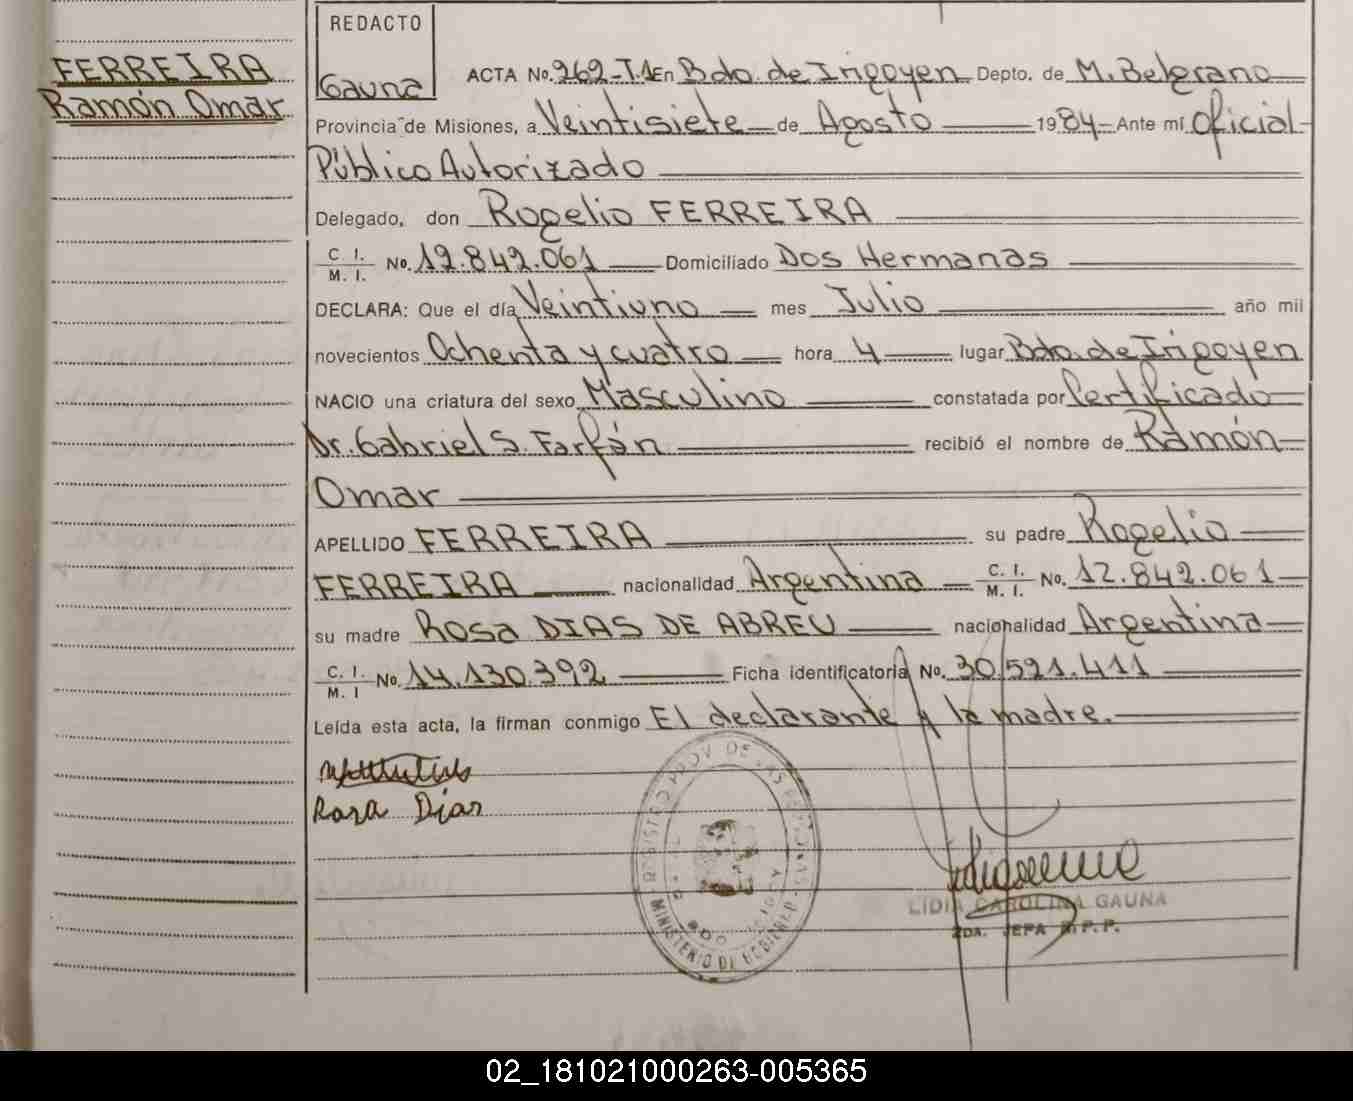 REDACTO
Gauna
FERREIRA
Ramón Omar
ACTA No. 262-T.1 En Bdo. de Irigoyen Depto. de M. Belgrano
Provincia de Misiones, a Veintisiete de Agosto 1984 Ante mí Oficial
Público Autorizado
Delegado, don Rogelio FERREIRA
C. I.
M. I. No. 12.842.061 Domiciliado Dos Hermanas
DECLARA: Que el día Veintiuno mes Julio año mil
novecientos Ochenta y cuatro hora 4 lugar Bdo. de Irigoyen
NACIO una criatura del sexo Masculino constatada por Certificado
Dr. Gabriel S. Farfán recibió el nombre de Ramón
Omar
APELLIDO FERREIRA su padre Rogelio
FERREIRA nacionalidad Argentina C. I. M. I. No. 12.842.061
su madre Rosa DIAS DE ABREU nacionalidad Argentina
C. I.
M. I No. 14.130.392 Ficha identificatoria No. 30.521.411
Leída esta acta, la firman conmigo El declarante y la madre.
Rosa Dias
REGISTRO PROV. DE LAS PERSONAS
MINISTERIO DE GOBIERNO
LIDIA CAROLINA GAUNA
2DA. JEFA R.P.P.
02_181021000263-005365